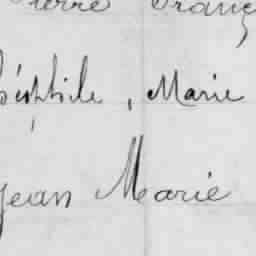 Pierre Franç
Théophile, Marie
Jean Marie